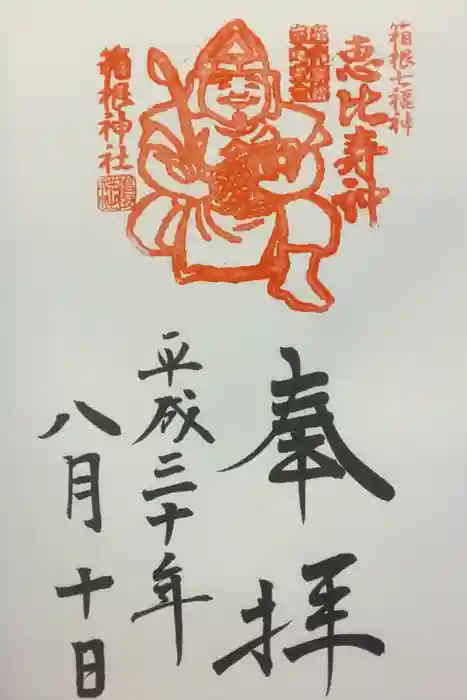 箱根七福神
恵比寿神
箱根神社
奉拝
平成三十年
八月十日